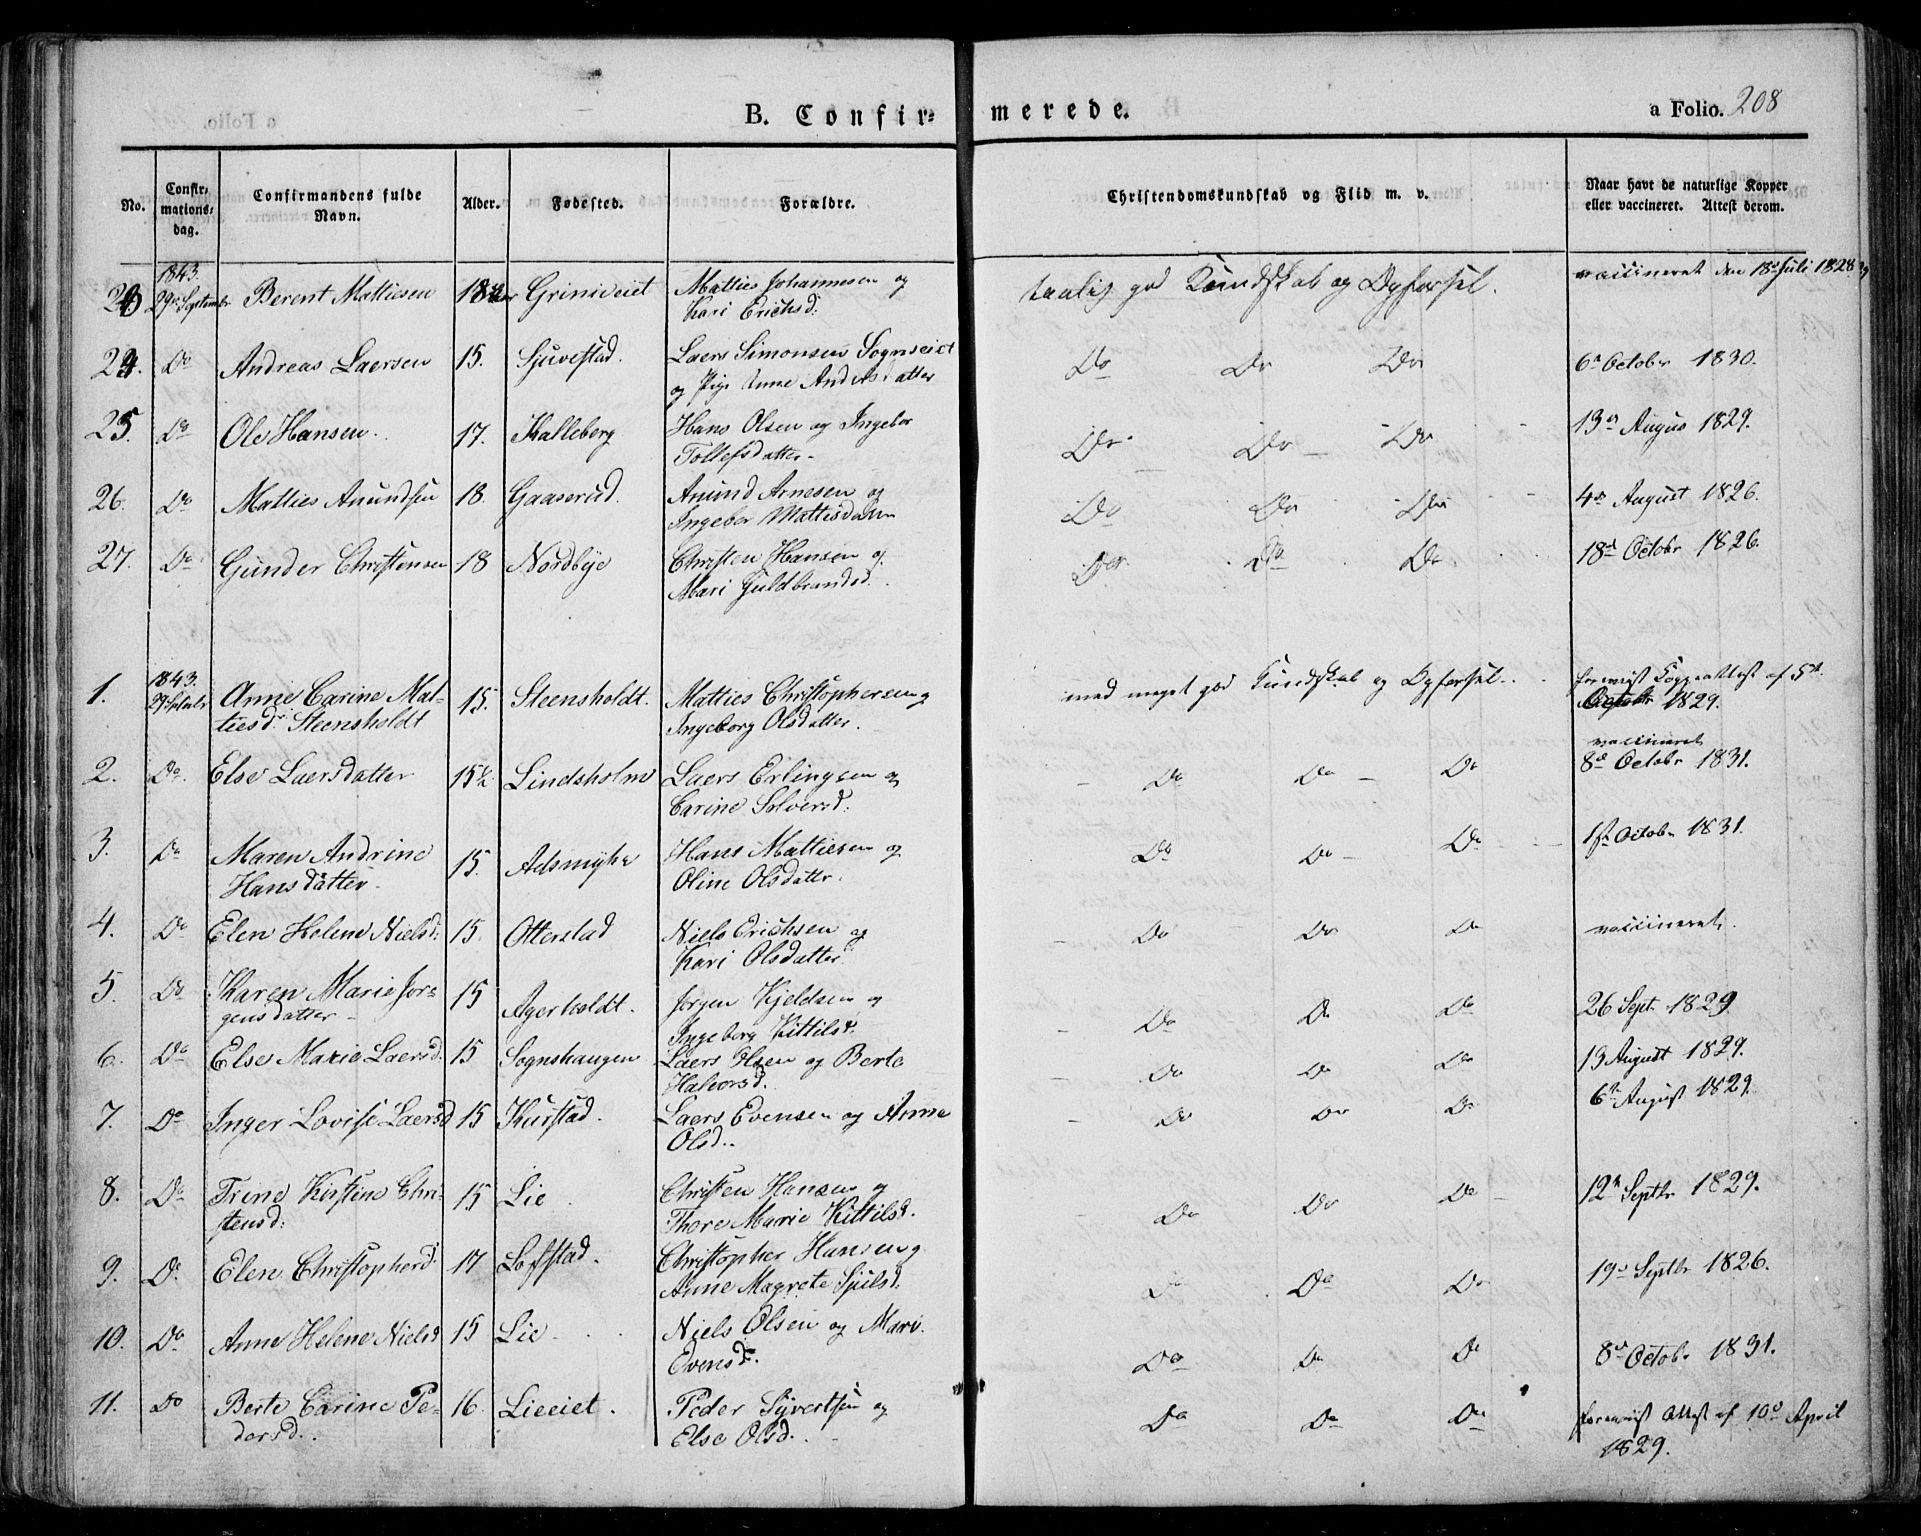 B. Confir=merede.
a Folio. 208
No.
Confir=
mations=
dag.
Confirmandens fulde
Navn.
Alder.
Fødested.
Forældre.
Christendomskundskab og Flid m. v.
Naar havt de naturlige Kopper
eller vaccineret. Attest derom.
1843.
29de Septembr Berent Mattiesen 18 Grinieiet Matties Johannesen og taalig god Kundskab og Opførsel. vaccineret den 18de Juli 1828
Kari Erichsd:
24. Do Andreas Laersen 15. Sjuvestad. Laers Simonsen Sognseiet Do Do Do 6te Octobr 1830.
og Pige Anne Andersdatter
25. Do Ole Hansen. 17. Kalleberg Hans Olsen og Ingebor Do Do Do 13de Augus 1829.
Tollefsdatter
26. Do Matties Anundsen 18. Gaaserud. Anund Arnesen og Do Do Do 4de August 1826.
Ingebor Mattisdatter
27. Do Gunder Christensen 18 Nordbye Christen Hansen og Do Do Do 18de Octobr 1826.
Mari Guldbrandsd.
1843.
1. 29 Septembr Anne Carine Mat- 15. Steensholdt. Matties Christophersen og med meget god Kundskab og Opførsel. foreviist Koppeattest af 5te
tiesd: Steensholdt Ingeborg Olsdatter. Octobr 1829.
vaccineret
2. Do. Else Laersdatter 15½ Lindsholm Laers Erlingsen og Do Do Do 8de Octobr 1831.
Carine Solversd:
3. Do Maren Andrine 15. Adsmyhr Hans Mattiesen og Do Do Do 1ste Octobr 1831.
Hansdatter. Oline Olsdatter.
4. Do Elen Helene Nielsd: 15. Otterstad Niels Erichsen og Do Do Do vaccineret.
Kari Olsdatter
5. Do Karen Marie Jør= 15 Agerholdt. Jørgen Kjeldsen og Do Do Do 26 Sept. 1829
gensdatter Ingeborg Kittilsd.
6. Do Else Marie Laersd. 15 Sognshaugen Laers Olsen og Berte Do Do Do 13 August 1829.
Halvorsd.
7. Do Inger Lovise Laersd 15 Kurstad. Laers Evensen og Anne Do Do Do 6te August 1829.
Olsd.
8. Do Trine Kirstine Chri- 15 Lie Christen Hansen og Do Do Do 12te Septbr 1829.
stensd: Thore Marie Kittilsd.
9. Do Elen Christophersd 17 Lofstad. Christopher Hansen og Do Do Do 19de Septbr 1826.
Anne Magrete Sjulsd:
10. Do Anne Helene Nielsd 15 Lie Niels Olsen og Mari Do Do Do 8de Octobr 1831.
Evensd.
11. Do Berte Carine Pe- 16 Lieeiet. Peder Syvertsen og Do Do Do foreviist Attest af 10de April
dersd. Else Olsd. 1829.